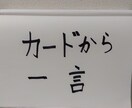 カードから
一言